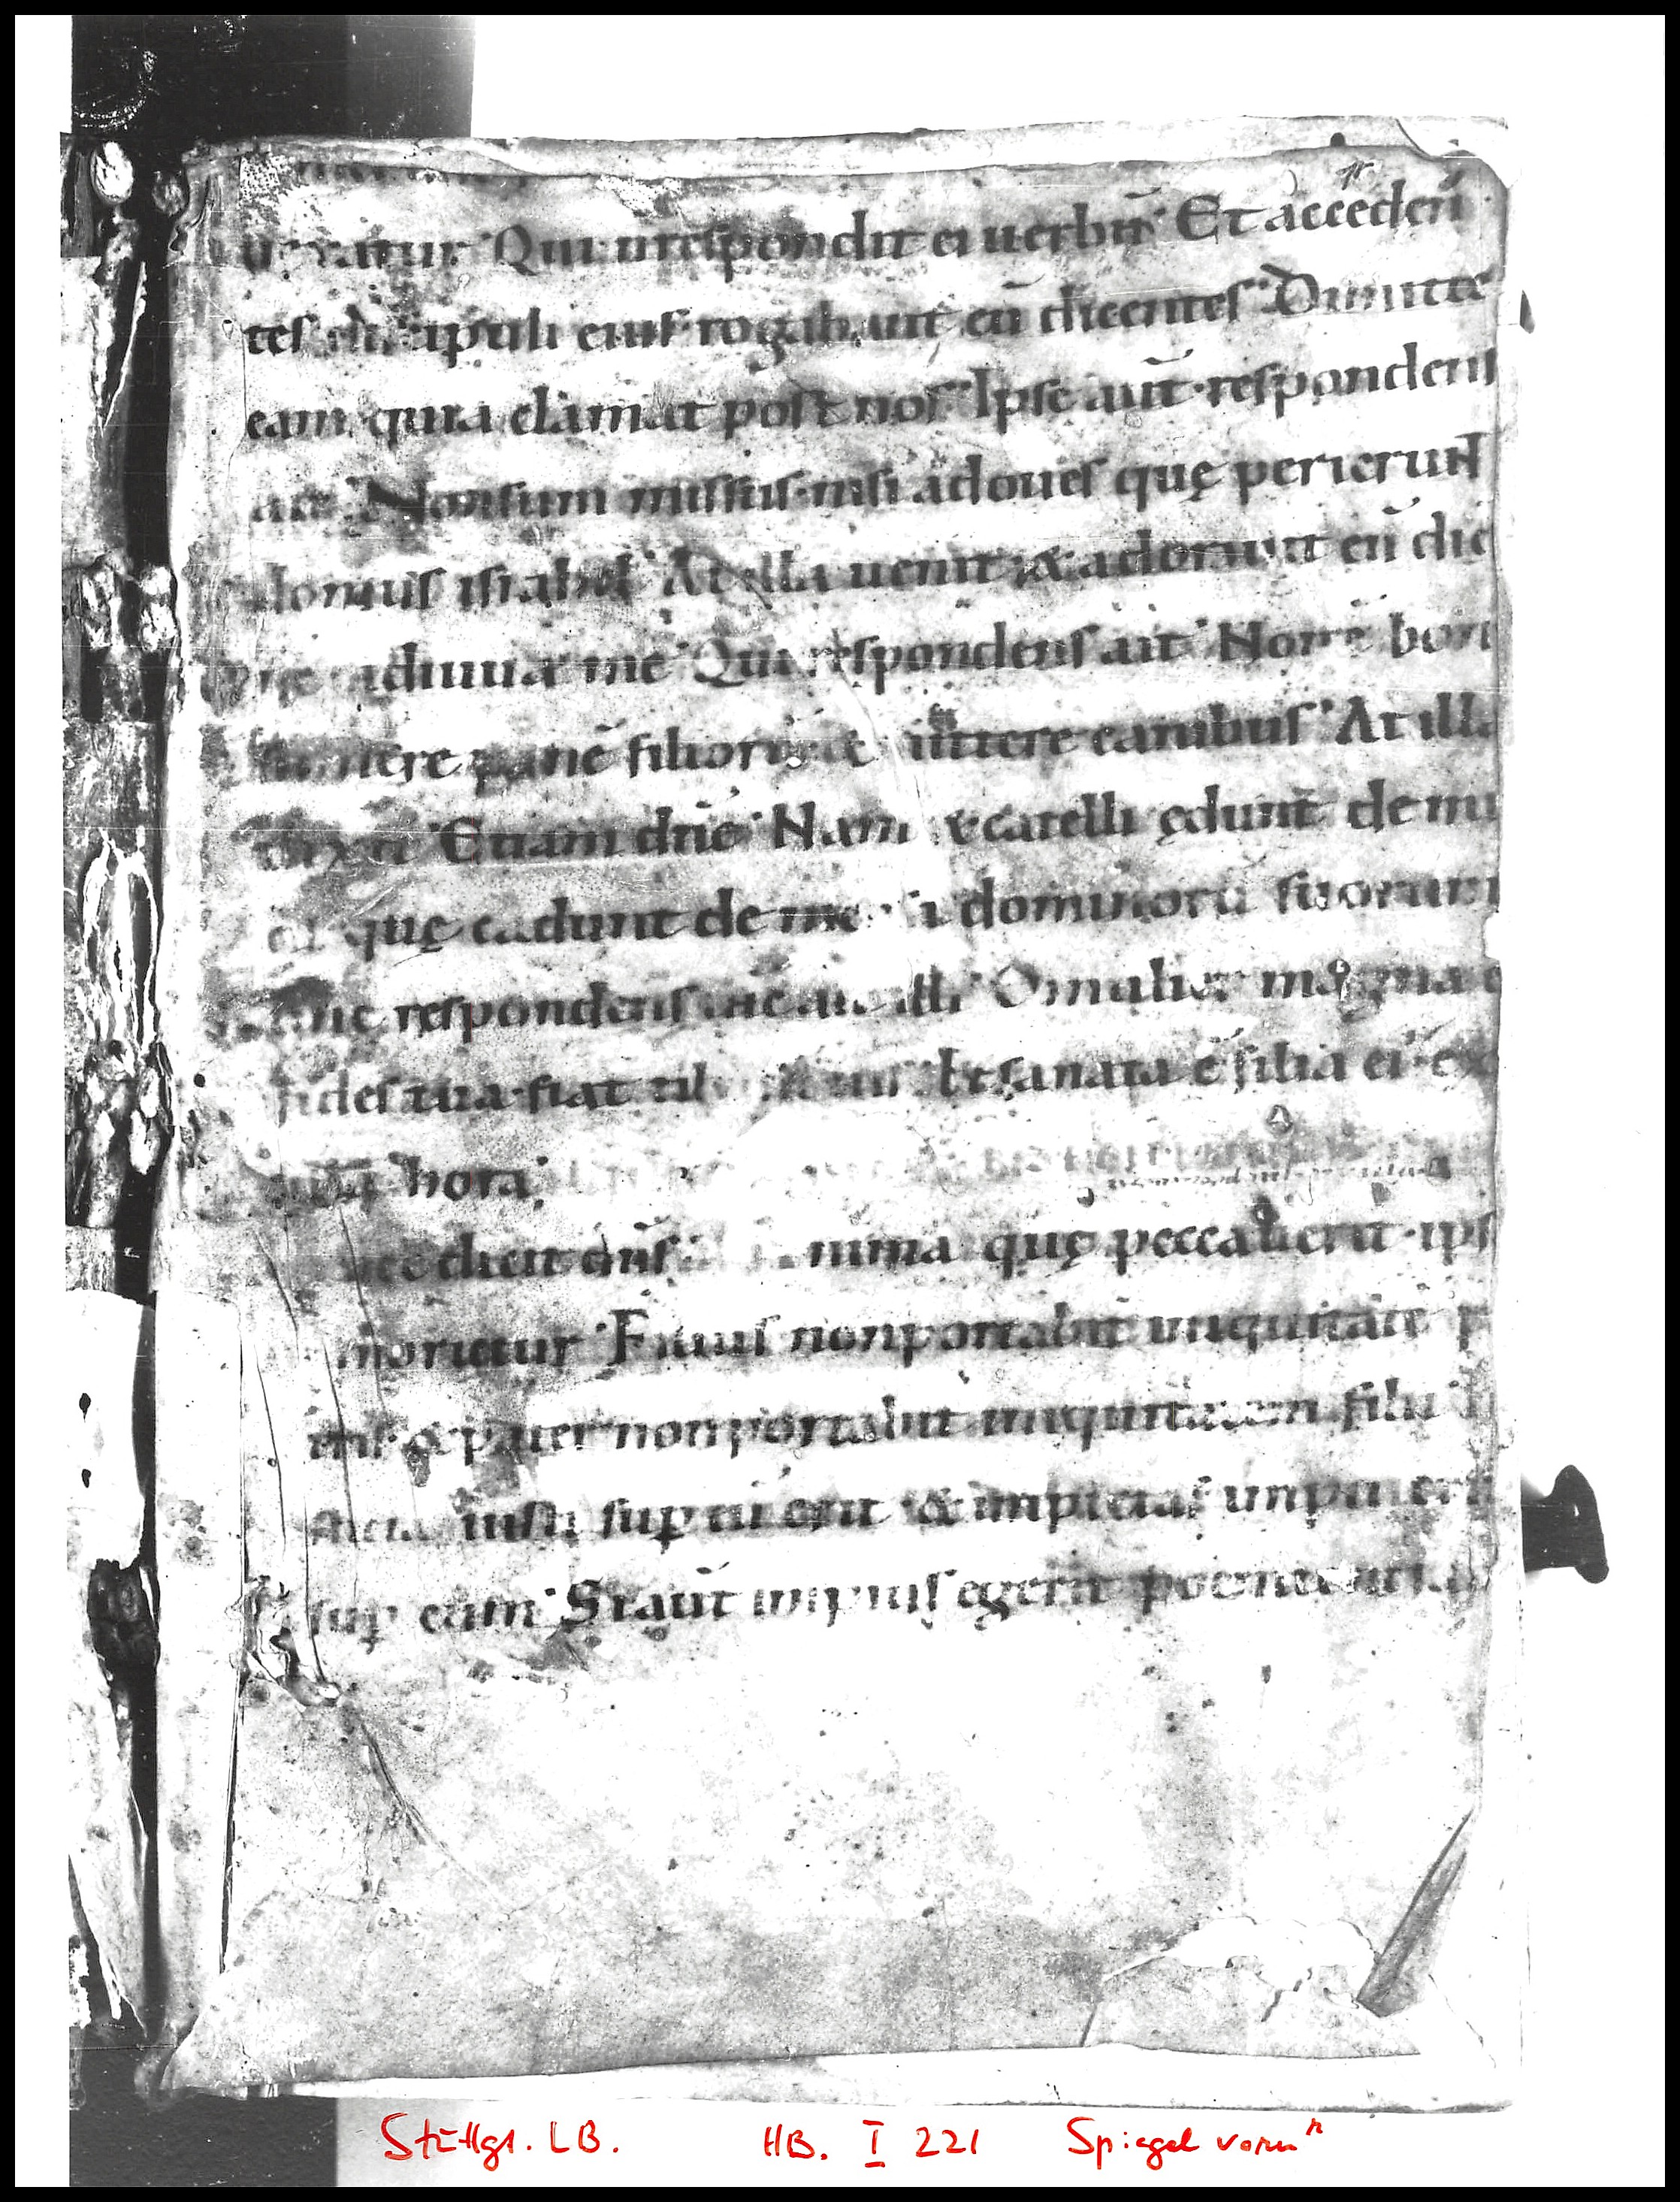 Qui n respondit ei uerbū Et acceden
tes discipuli eius rogabant eū dicentes Dimitte
eam quia clamat post nos Ipse aūt respondens
ait Non sum missus nisi ad oues quę perierunt
domus israhel At illa uenit & adorauit eū dic
adiuua me Qui respondens ait Non ē bon
sumere panē filiorū & mittere canibus At illa
dixit Etiam dn̄e Nam & catelli ędunt de mi
quę cadunt de mensa dominorū suorum
Tunc respondens ait illi O mulier magna e
fides tua fiat tibi Et sanata ē filia ei ex
hora
dicit dn̄s anima quę peccauerit ips
morietur Filius non portabit iniquitatē p
& pater non portabit iniquitatem filii
iusti suꝑ eū erit & impietas impii erit
suꝑ eum Si aūt impius egerit
Stuttgt. LB. HB. I 221 Spiegel vorn